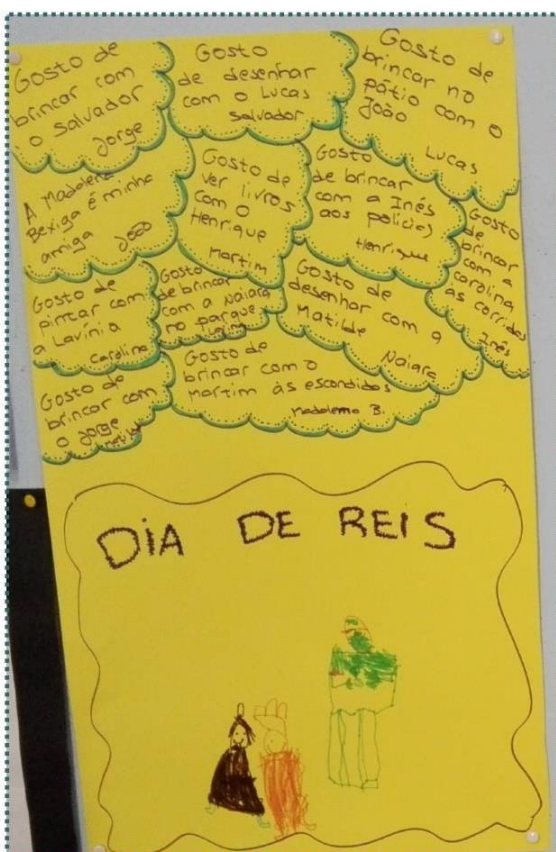 Gosto de
brincar com
o Salvador
Jorge
Gosto
de desenhar
com o Lucas
Salvador
Gosto de
brincar no
pátio com o
João
Lucas
A Madalena
Bexiga é minha
amiga
João
Gosto de
ver livros
com o
Henrique
Martim
Gosto
de brincar
com a Inês
aos polícias
Henrique
Gosto
de
brincar
com a
carolina
às corridas
Inês
Gosto de
pintar com
a Lavínia
Carolina
Gosto
de brincar
com a Naiara
no parque
Gosto de
desenhar com a
Matilde
Naiara
Gosto de
brincar com o
Martim às escondidas
Madalena B.
Gosto de
brincar com
o Jorge
DIA DE REIS